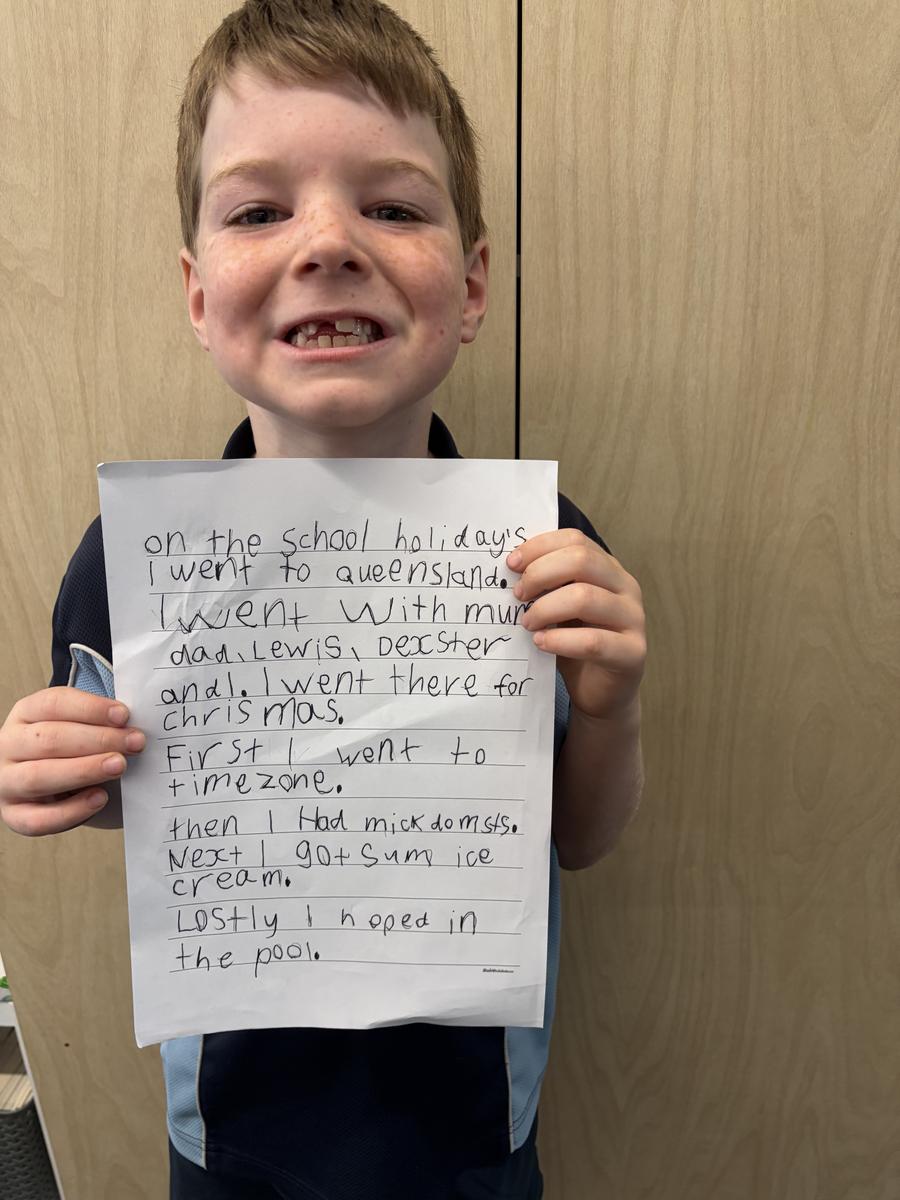 on the school holiday's
I went to queensland.
I went with mum
dad, Lewis, Dexster
and I. I went there for
chrismas.
First I went to
timezone.
then I Had mickdomsts.
Next I got sum ice
cream.
Lostly I hoped in
the pool.